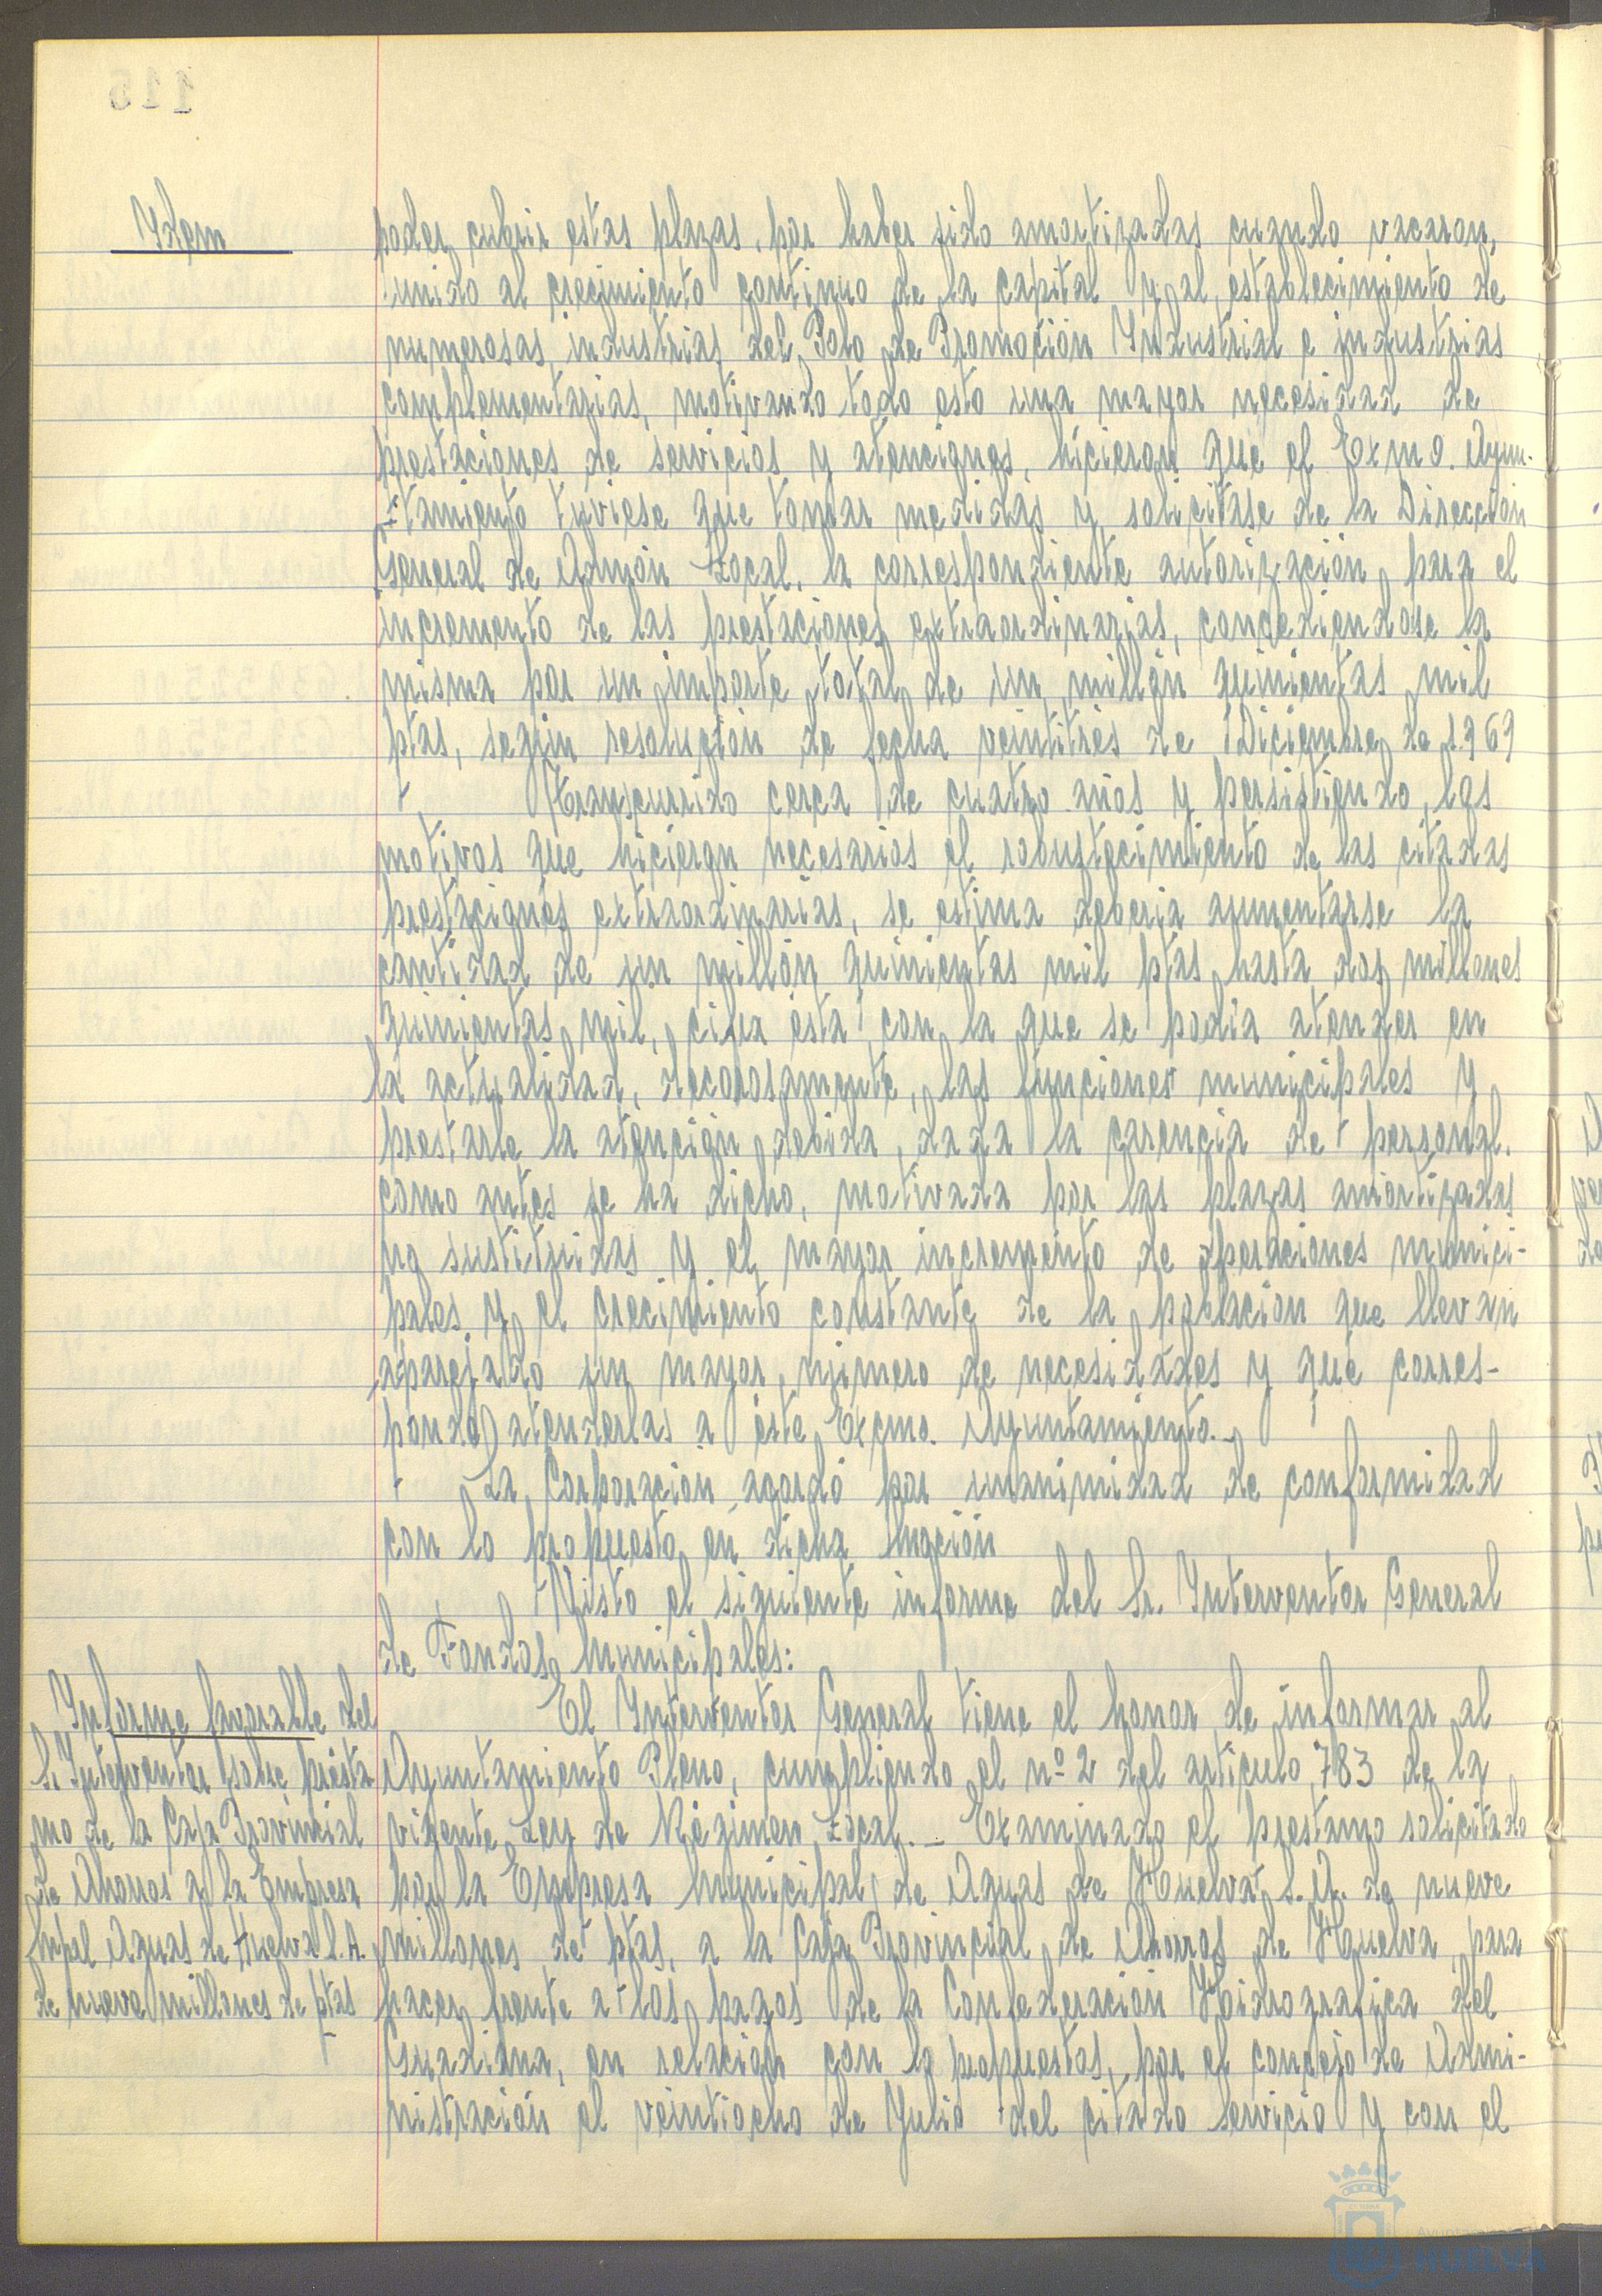 115
Ydem
poder cubrir estas plazas, por haber sido amortizadas cuando vacaron,
unido al crecimiento continuo de la capital y al establecimiento de
numerosas industrias del Polo de Promoción Yndustrial e industrias
complementarias, motivando todo esto una mayor necesidad de
prestaciones de servicios y atenciones, hicieron que el Exmo. Ayun-
-tamiento tuviese que tomar medidas y solicitase de la Dirección
General de Admón Local, la correspondiente autorización para el
incremento de las prestaciones extraordinarias, concediendose la
misma por un importe total de un millón quinientas mil
ptas, según resolución de fecha veintitrés de Diciembre de 1969
Transcurrido cerca de cuatro años y persistiendo los
motivos que hicieron necesarios el robustecimiento de las citadas
prestaciones extraordinarias, se estima deberia aumentarse la
cantidad de un millón quinientas mil ptas hasta dos millones
quinientas mil, cifra ésta con la que se podía atender en
la actualidad, decorosamente, las funciones municipales y
prestarle la atención debida, dada la carencia de personal,
como antes se ha dicho, motivada por las plazas amortizadas
no sustituidas y el mayor incremento de operaciones munici-
pales y el crecimiento constante de la población que llevan
aparejado un mayor número de necesidades y que corres-
ponde atenderlas a éste Excmo. Ayuntamiento.-
La Corporación acordó por unanimidad de conformidad
con lo propuesto en dicha moción
Visto el siguiente informe del Sr. Ynterventor General
de Fondos Municipales:
Ynforme favorable del
Sr. Ynterventor sobre présta
mo de la Caja Provincial
de Ahorros a la Empresa
Mpal Aguas de Huelva S.A.
de nueve millones de ptas
El Ynterventor General tiene el honor de informar al
Ayuntamiento Pleno, cumpliendo el nº 2 del artículo 783 de la
vigente Ley de Régimen Local.- Examinado el prestamo solicitado
por la Empresa Municipal de Aguas de Huelva S.A. de nueve
millones de ptas, a la Caja Provincial de Ahorros de Huelva para
hacer frente a los pagos de la Confederación Hidrografica del
Guadiana, en relación con lo propuestos, por el concejo de Admi-
nistración el veintiocho de Julio del citado Servicio y con el
HUELVA